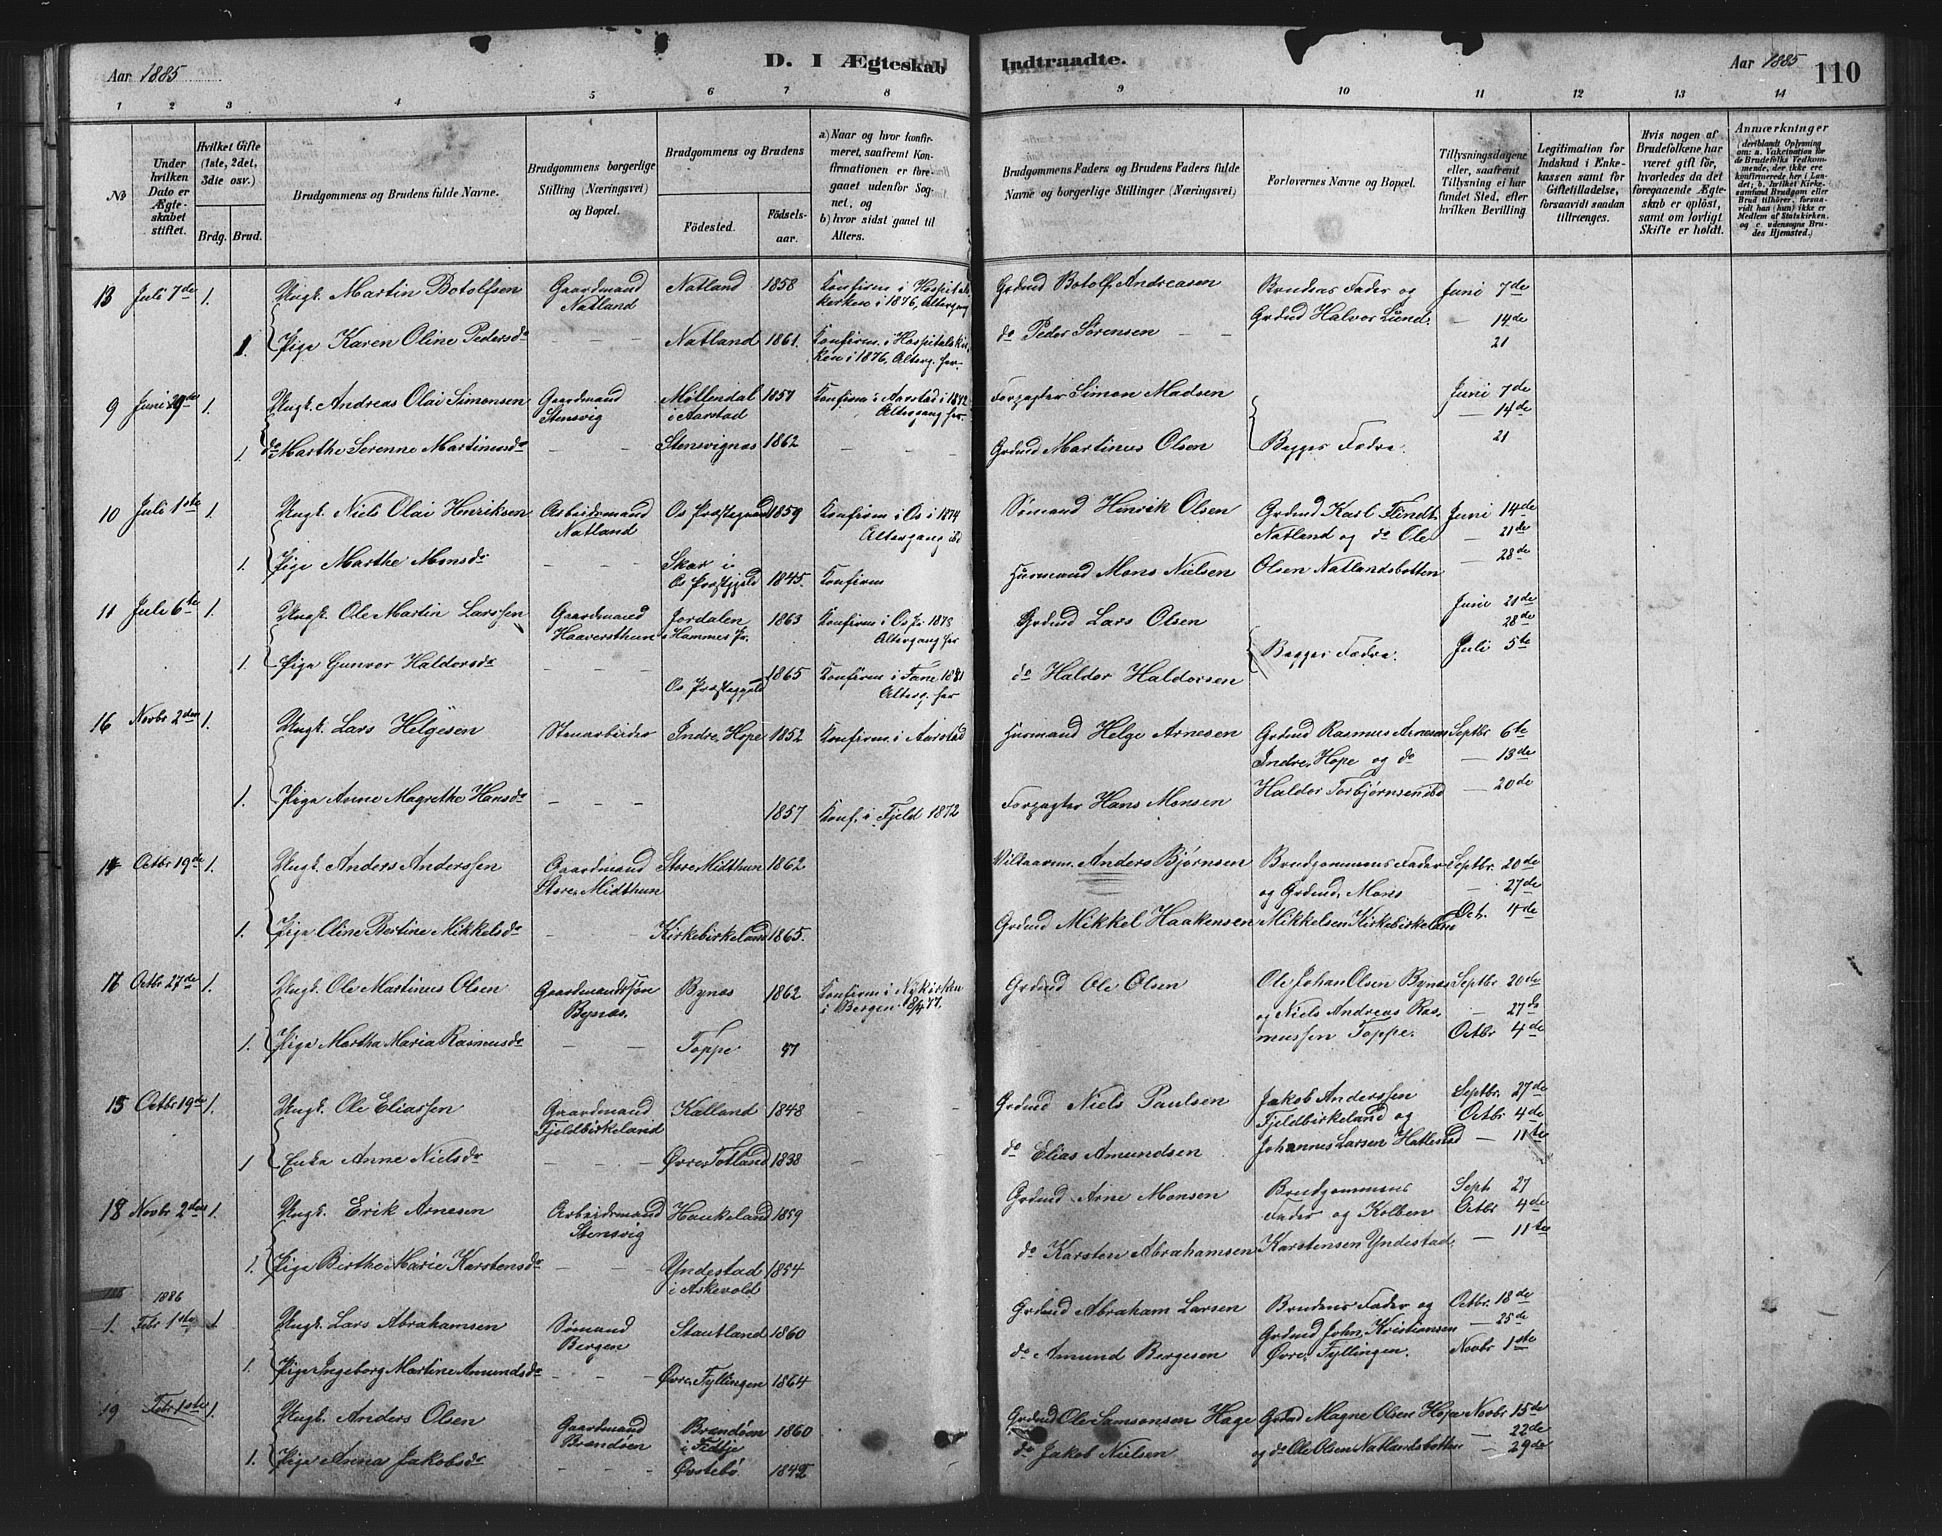 Aar 1885
D. I Ægteskab Indtraadte.
Aar 1885 110
1 2 3 4 5 6 7 8 9 10 11 12 13 14
No
Under hvilken Dato er Ægteskabet stiftet.
Hvilket Gifte (1ste, 2det, 3die osv.)
Brdg. Brud.
Brudgommens og Brudens fulde Navne.
Brudgommens borgerlige Stilling (Næringsvei) og Bopæl.
Brudgommens og Brudens
Fødested.
Fødselsaar.
a) Naar og hvor konfirmeret, saafremt Konfirmationen er foregaaet udenfor Sognet, og
b) hvor sidst gaaet til Alters.
Brudgommens Faders og Brudens Faders fulde Navne og borgerlige Stillinger (Næringsvei)
Forlovernes Navne og Bopæl.
Tillysningsdagene eller, saafremt Tillysning ei har fundet Sted, efter hvilken Bevilling
Legitimation for Indskud i Enkekassen samt for Giftetilladelse, forsaavidt saadan tiltrænges.
Hvis nogen af Brudefolkene har været gift før, hvorledes da det foregaaende Ægteskab er opløst, samt om lovligt Skifte er holdt.
Anmærkninger
(deriblandt Oplysning om: a. Vakcination for de Brudefolks Vedkommende, der ikke ere konfirmerede her i Landet; b. hvilket Kirkesamfund Brudgom eller Brud tilhører, forsaavidt han (hun) ikke er Medlem af Statskirken, og c. udensogns Brudes Hjemsted.)
13 Juli 7de 1. Ungk. Martin Botolfsen Gaardmand Natland Natland 1858 Konfirm i Hospitalskirken i 1876, Altergang Grdmd Botolf Andreasen Brudens Fader og Juni 7de
1. Pige Karen Oline Pedersdr — — Natland 1861. Konfirm. i Hospitalskirken i 1876, Alterg. her. do Peder Sørensen Grdmd Halvor Lund. — 14de
21
9 Juni 29de 1. Ungk. Andreas Olai Simonsen Gaardmand Stensvig Møllendal i Aarstad 1857 Konfirm i Aarstad i 1872 Altergang her. Forpagter Simon Madsen Juni 7de
— 14de
1. do Marthe Serenne Martinusdr — — Stensvignæs 1862 — — — Grdmd Martinus Olsen Begges Fædre. 21
10 Juli 1ste 1. Ungk. Niels Olai Henriksen Arbeidsmand Natland Os Præstegjæld 1859 Konfirm i Os i 1874 Altergang ibd Sømand Henrik Olsen Grdmd Karl Flindt Juni 14de
Natland og do Ole — 21de
1. Pige Marthe Monsdr — — Skar i Os Præstgjæld 1845. Konfirm Husmand Mons Nielsen Olsen Natlandsbotten — 28de
11 Juli 6te 1. Ungk. Ole Martin Larssen Gaardmand Haaversthun Jordalen i Hammer Pr. 1863 Konfirm i Os Pr. 1878 Altergang her Grdmd Lars Olsen Juni 21de
28de
1. Pige Gunvor Haldorsdr — — Os Præstegjæld 1865 Konfirm i Fane 1881 Alterg. her do Haldor Haldorsen Begges Fædre. Juli 5te
16 Novbr 2den 1. Ungk. Lars Helgesen Stenarbeider Indre Hope 1852 Konfirm. i Aarstad Husmand Helge Arnesen Grdmd Rasmus Arnesen Septbr 6te
Indre, Hope og do — 13de
1. Pige Anne Magrethe Hansdr — — 1857 Konf. i Fjeld 1872 Forpagter Hans Monsen Haldor Torbjørnsen ibd — 20de
14 Octbr 19de 1. Ungk. Anders Anderssen Gaardmand Store Midthun Store Midthun 1862 Anders Bjørnsen Brudgommens Fader Septbr. 20de
og Grdmd, Mons — 27de
1. Pige Oline Bertine Mikkelsdr — — Kirkebirkeland 1865. Grdmd Mikkel Haakensen Mikkelsen Kirkebirkeland Oct. 4de
17 Octbr 27de 1. Ungk. Ole Martinus Olsen Gaardmandssøn Bynæs. Bynæs 1862 Konfirm i Nykirken i Bergen 77. Grdmd Ole Olsen Ole Johan Olsen Bynæs Septbr 20de
og Niels Andreas Ras, — 27de
1. Pige Martha Maria Rasmusdr — — Toppe 57 mussen Toppe. Octbr 4de
15 Octbr 19de 1. Ungk. Ole Eliassen Gaardmand Fjeldbirkeland Kalland 1848 — — Grdmd Niels Paulsen Jakob Anderssen Septbr. 27de
Fjeldbirkeland og Octbr 4de
1 Enke Anne Nielsdr — — Øvre, Totland 1838 — do Elias Amundsen Johannes Larsen Hatlestad — 11te
18 Novbr 2den 1. Ungk. Erik Arnesen Arbeidsmand Stensvig Haukeland 1859 Grdmd Arne Monsen Brudgommens Septb 27
Fader og Kolben Octbr 4de
1. Pige Birthe Marie Karstensdr — — Yndestad i Askevold 1854 do Karsten Abrahamsen Karstensen Yndestad, — 11te
1886
1. Febr 1ste 1. Ungk. Lars Abrahamsen Sømand Bergen Stautland 1860 Grdmd Abraham Larsen Brudens Fader og Octbr. 18de
Grdmd John Kristiansen — 25de
1. Pige Ingeborg Martine Amundsdr — — Øvre, Fyllingen 1864 do Amund Bergesen Øvre, Fyllingen. Novbr 1ste
19 Febr 1ste 1. Ungk. Anders Olsen Gaardmand Brandøen Brandøen i Fidtje 1860 Grdmd Ole Samsonsen Hage Grdmd Magne Olsen Hope Novbr 15de
— 22de
1. Pige Anna Jakobsdr — — Øvstebø 1842 do Jakob Nielsen og do Ole Olsen Natlandsbotten — 29de